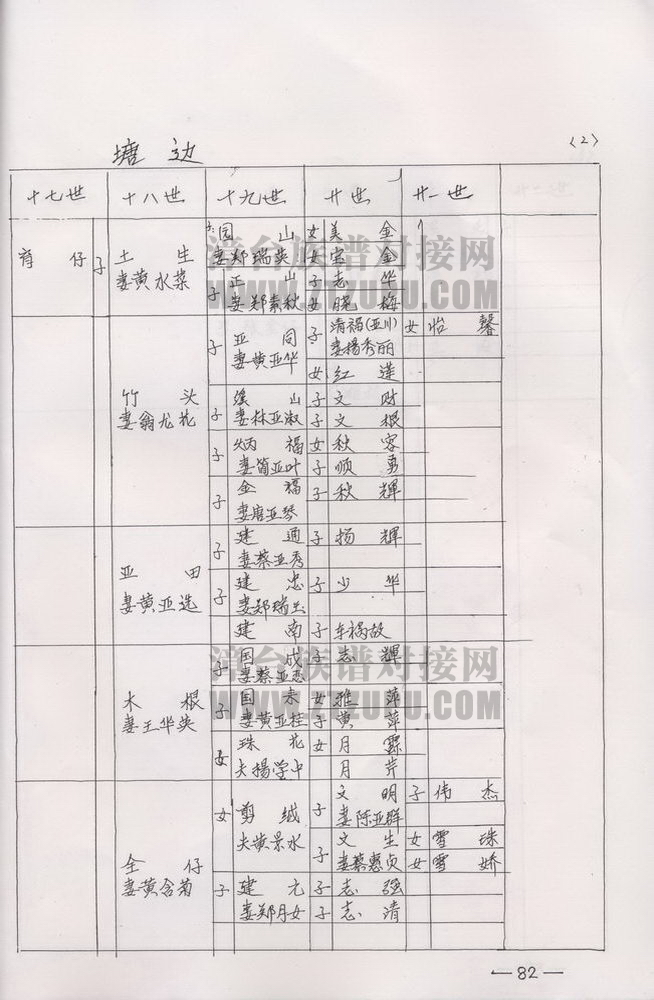 〈2〉
塘边
十七世 十八世 十九世 廿世 廿一世
育仔 子 土生 园山 女 美金
妻黄水菜 妻郑瑞英 女 宝金
子 正山 子 志华
妻郑素秋 女 晓梅
子 亚同 子 清福(亚川) 女 怡馨
妻黄亚华 妻杨秀丽
女 红莲
竹头 子 溪山 子 文财
妻翁尤花 妻林亚淑 子 文根
子 炳福 女 秋容
妻简亚叶 子 顺勇
子 金福 子 秋辉
妻唐亚琴
子 建通 子 扬辉
妻蔡亚秀
亚田 子 建忠 子 少华
妻黄亚选 妻郑瑞玉
建南 子 车祸故
子 国成 子 志辉
妻蔡亚恋
木根 子 国泰 女 雅萍
妻王华英 妻黄亚桂 子 黄萍
女 珠花 女 月霞
夫杨学中 月芹
女 剪绒 子 文明 子 伟杰
夫黄景水 妻陈亚群
子 文生 女 雪珠
全仔 妻蔡惠贞 女 雪娇
妻黄含菊 子 建元 子 志强
妻郑月女 子 志清
漳台族谱对接网
WWW.ZTZUPU.COM
漳台族谱对接网
WWW.ZTZUPU.COM
—82—